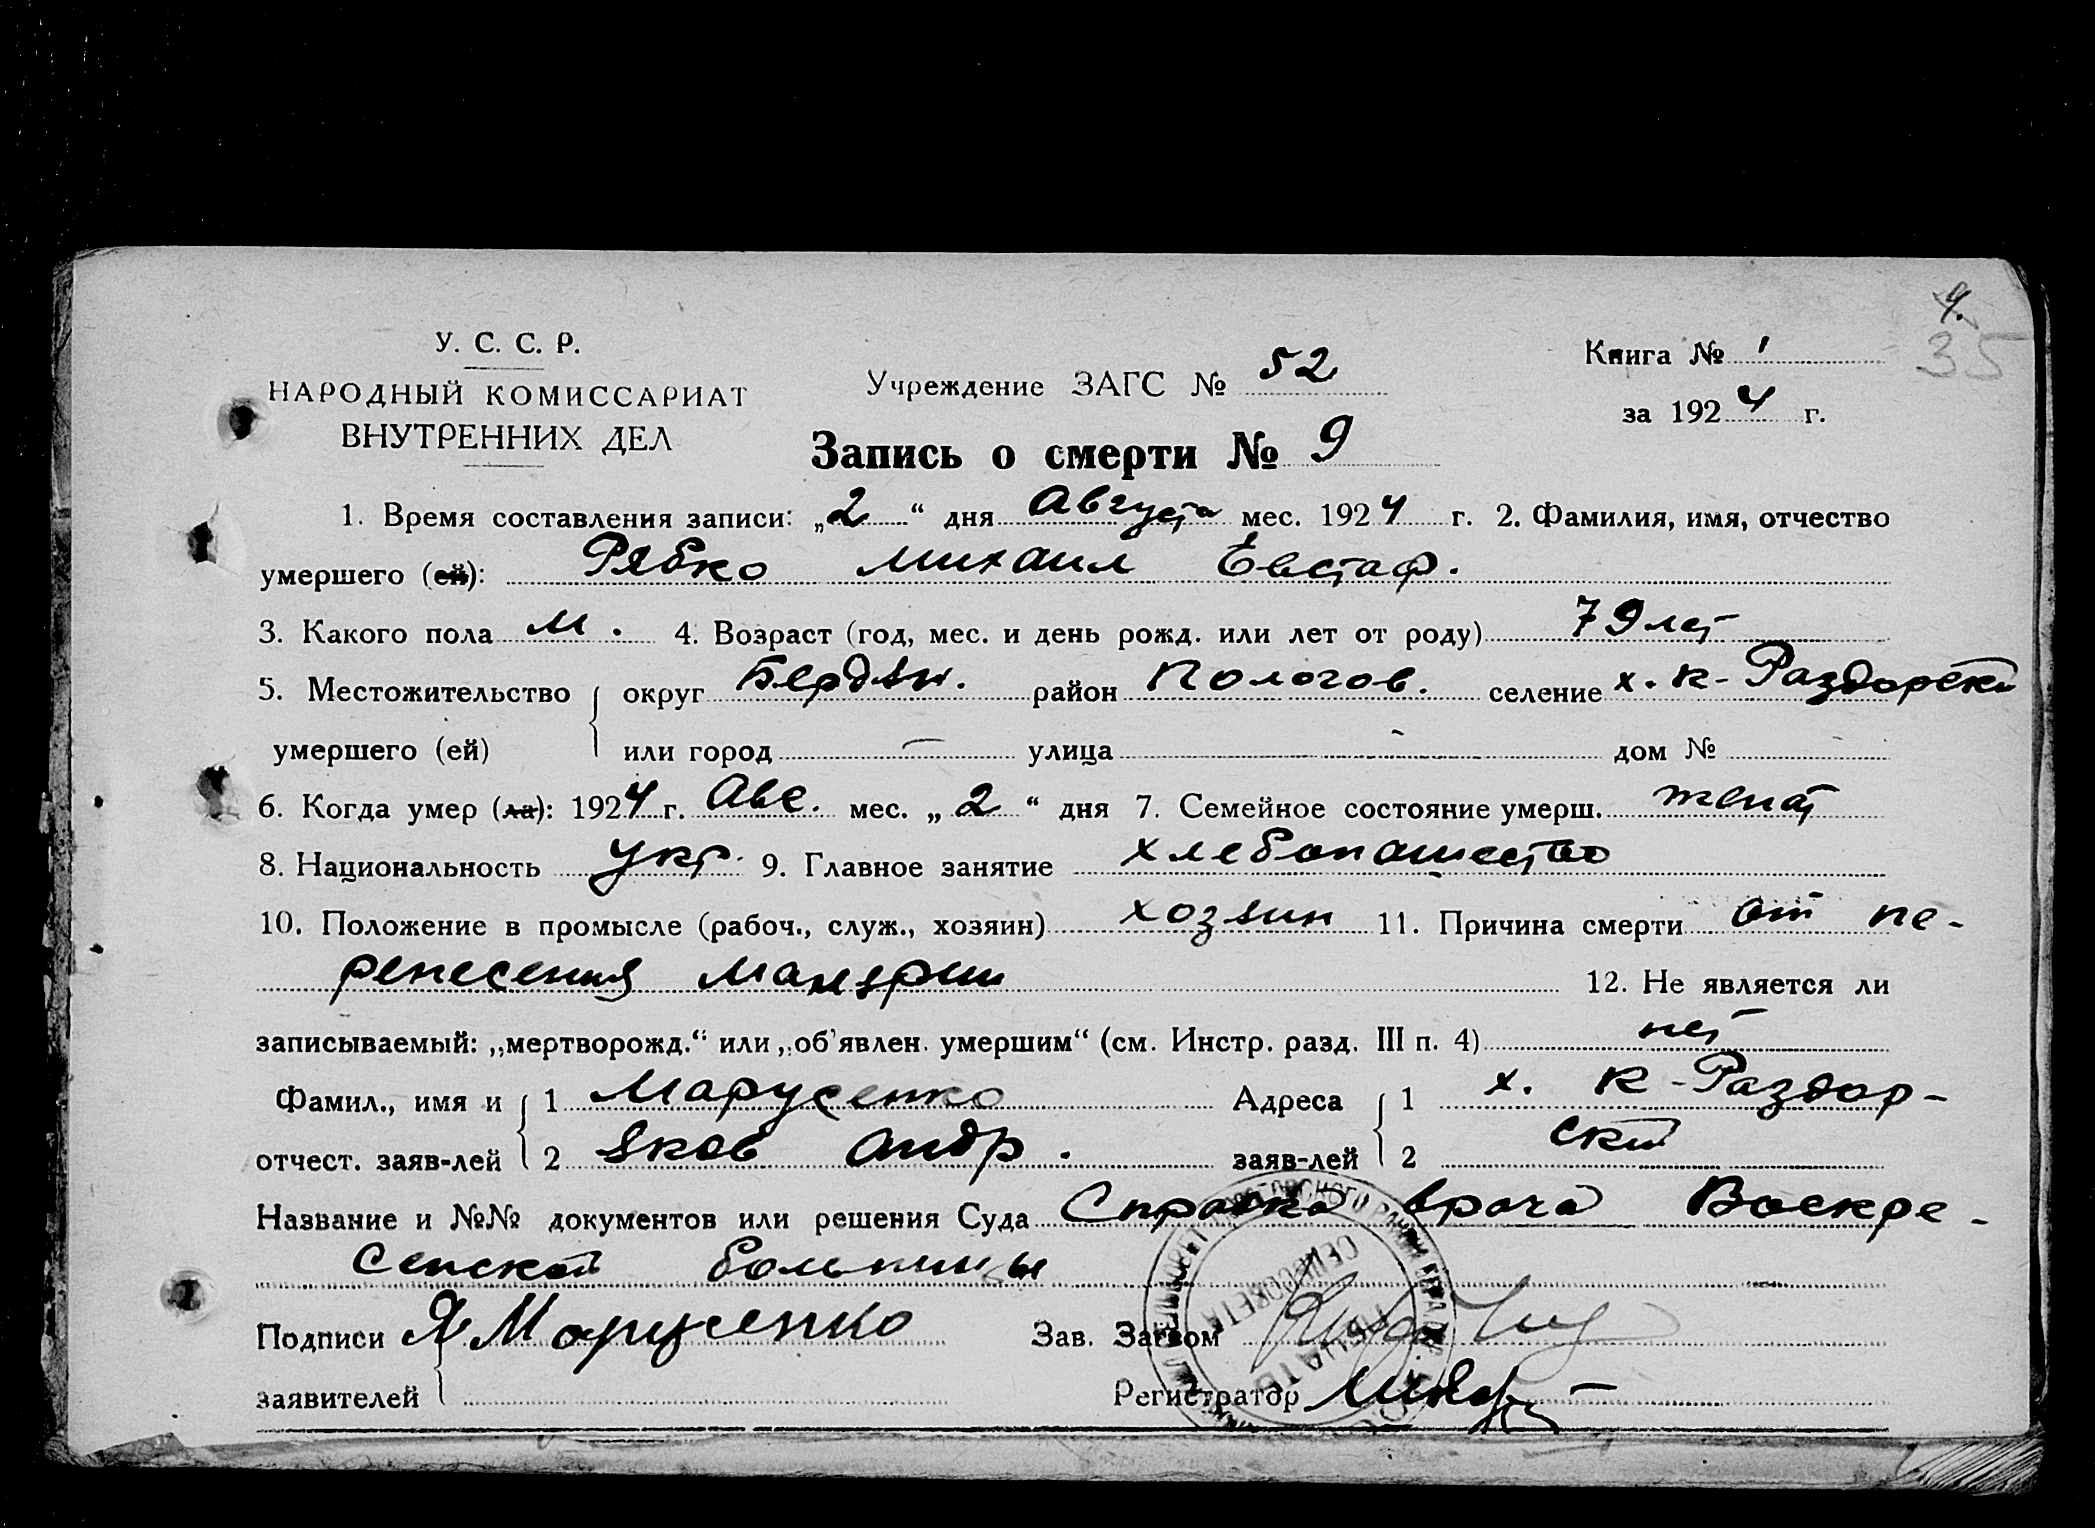 9.
35
У. С. С. Р.
НАРОДНЫЙ КОМИССАРИАТ
ВНУТРЕННИХ ДЕЛ
Учреждение ЗАГС № 52
Книга № 1
за 1924 г.
Запись о смерти № 9
1. Время составления записи: „2“ дня Августа мес. 1924 г. 2. Фамилия, имя, отчество
умершего (ей): Рябко Михаил Евстаф.
3. Какого пола м. 4. Возраст (год, мес. и день рожд. или лет от роду) 79 лет
5. Местожительство округ Бердян. район Пологов. селение х. К-Раздорский
умершего (ей) или город — улица - дом № -
6. Когда умер (ла): 1924 г. Авг. мес. „2“ дня 7. Семейное состояние умерш. женат
8. Национальность укр. 9. Главное занятие хлебопашество
10. Положение в промысле (рабоч., служ., хозяин) хозяин 11. Причина смерти от пе-
ренесения малярии 12. Не является ли
записываемый: „мертворожд.“ или „об'явлен. умершим“ (см. Инстр. разд. III п. 4) нет
Фамил., имя и 1 Марусенко Адреса 1 х. К-Раздор-
отчест. заяв-лей 2 Яков Андр. заяв-лей 2 ский
Название и №№ документов или решения Суда Справка врача Воскре-
сенской больницы
Подписи Я. Марусенко Зав. Загсом
заявителей Регистратор